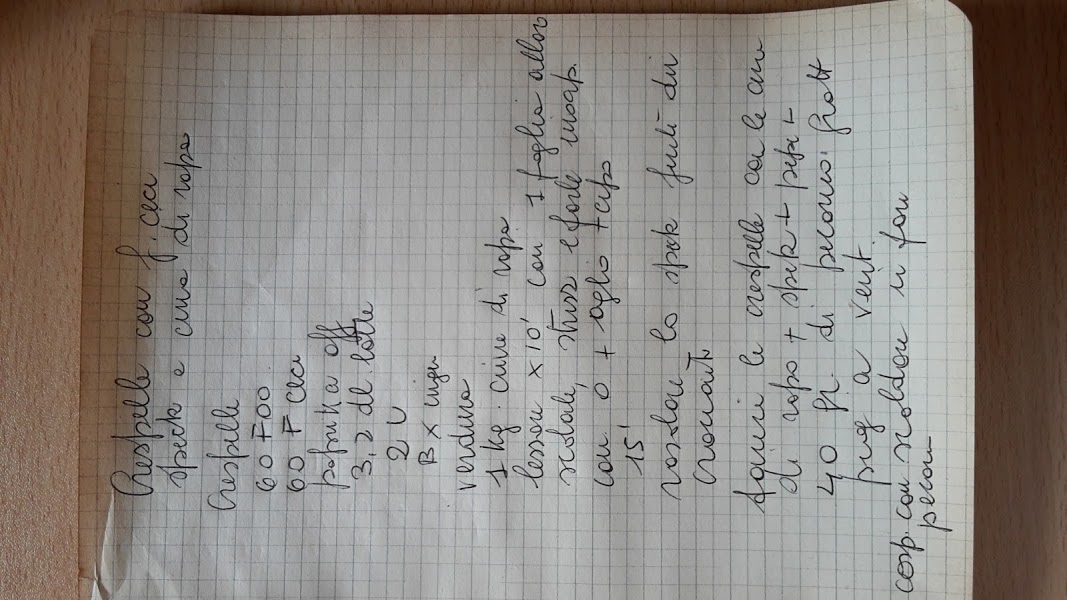 Crespelle con f. ceci
speck e cime di rapa
Crespelle
60 F00
60 F ceci
paprika aff
3,2 dl latte
2 U
B x unge
verdura
1 kg. cime di rapa
lessare x 10' con 1 foglia alloro
scolale, strizz e farle insap.
con O + aglio + capo
15'
rosolare lo speck finché div
croccante
farcire le crespelle con le cime
di rapa + speck + pepe +
40 gr. di pecorino gratt
pieg a vent.
cosp. con scaldare in forn
pecor